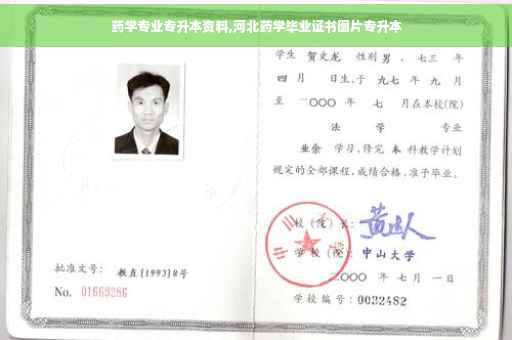 药学专业专升本资料,河北药学毕业证书图片专升本
学生 贺文龙 性别 男 、七三 年
四 月 日生,于 九七 年 九 月
至 二〇〇〇 年 七 月在本校(院)
法 学 专业
业余 学习,修完 本 科教学计划
规定的全部课程,成绩合格,准予毕业。
校(院)长:
学校(院): 中山大学
二〇〇〇 年 七 月 一 日
学校编号: 0032482
批准文号: 教直[1993]8号
No. 01669286